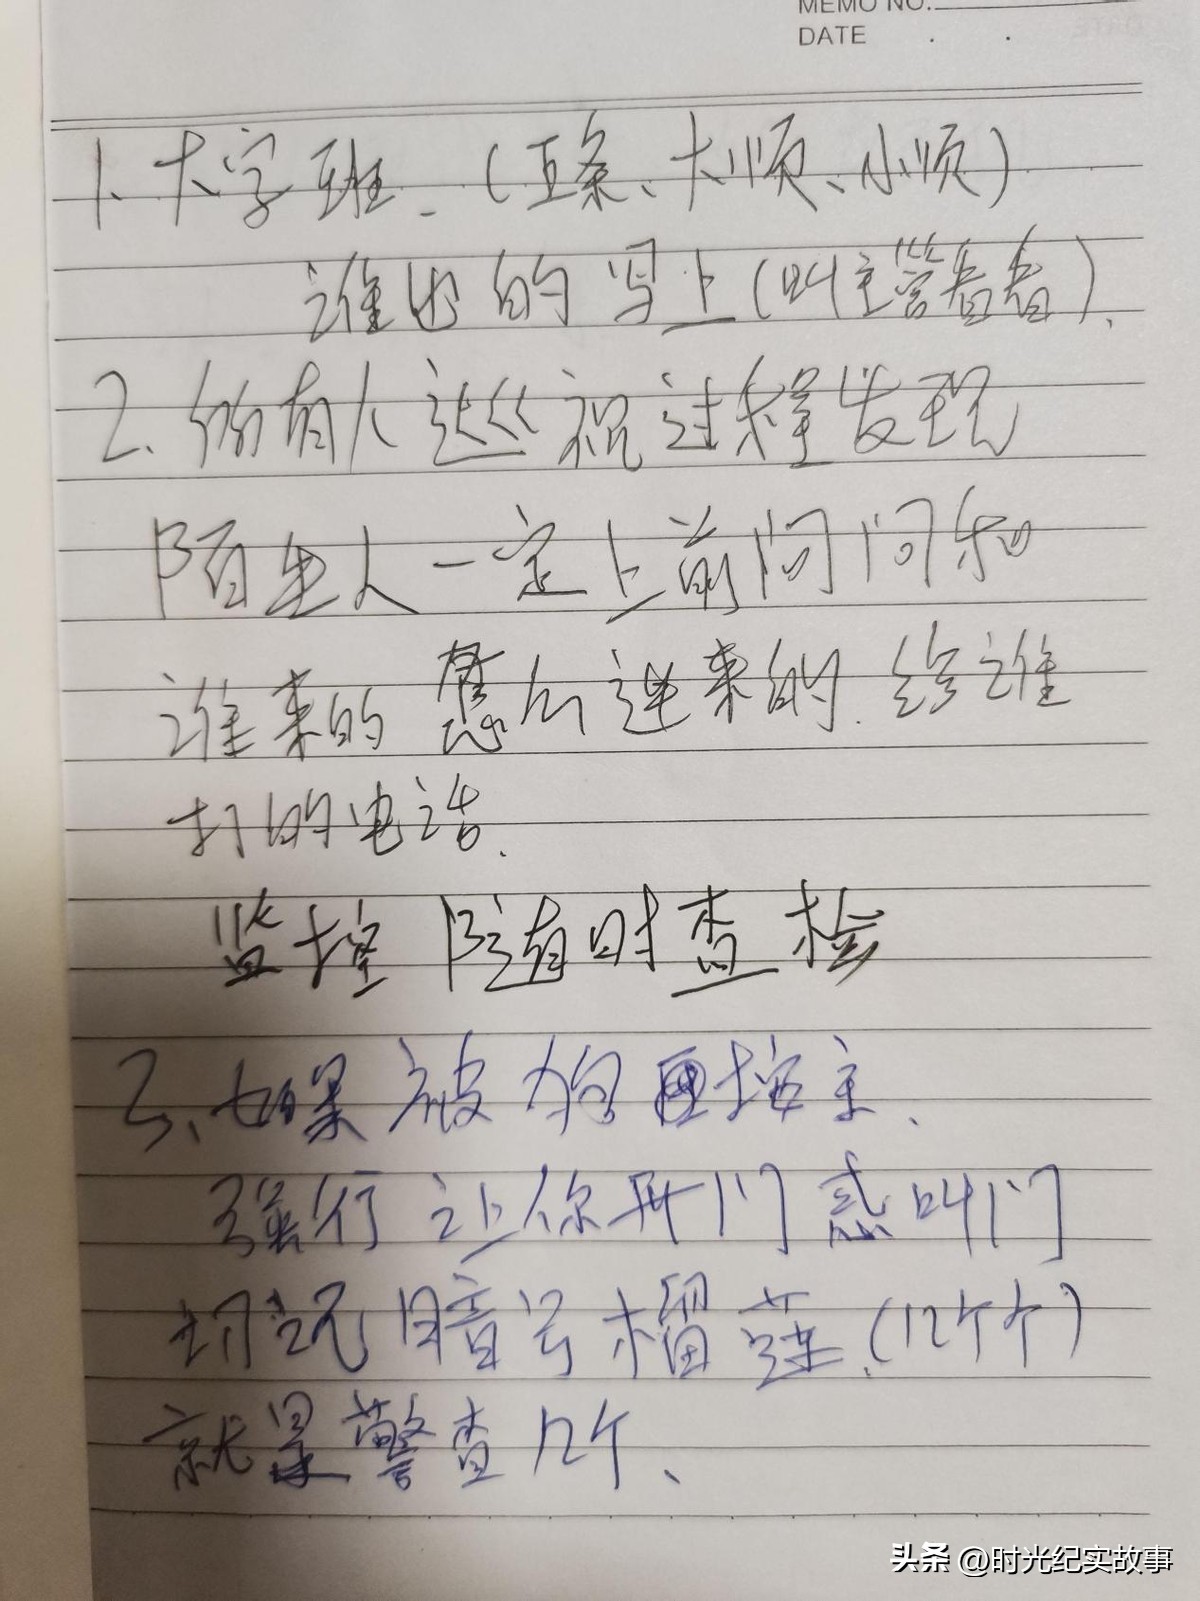 MEMO NO.
DATE . .
1、大字班.（五条、大顺、小顺）
谁出的写上(叫主营看看).
2.你有人巡视过程发现
陌生人一定上前问问和
谁来的 怎么进来的.给谁
打的电话.
监控 随时查检
3、如果被狗 堵主、
强行让你开门惑叫门
切记暗号榴莲.(几个个)
就是警查几个、
头条 @时光纪实故事